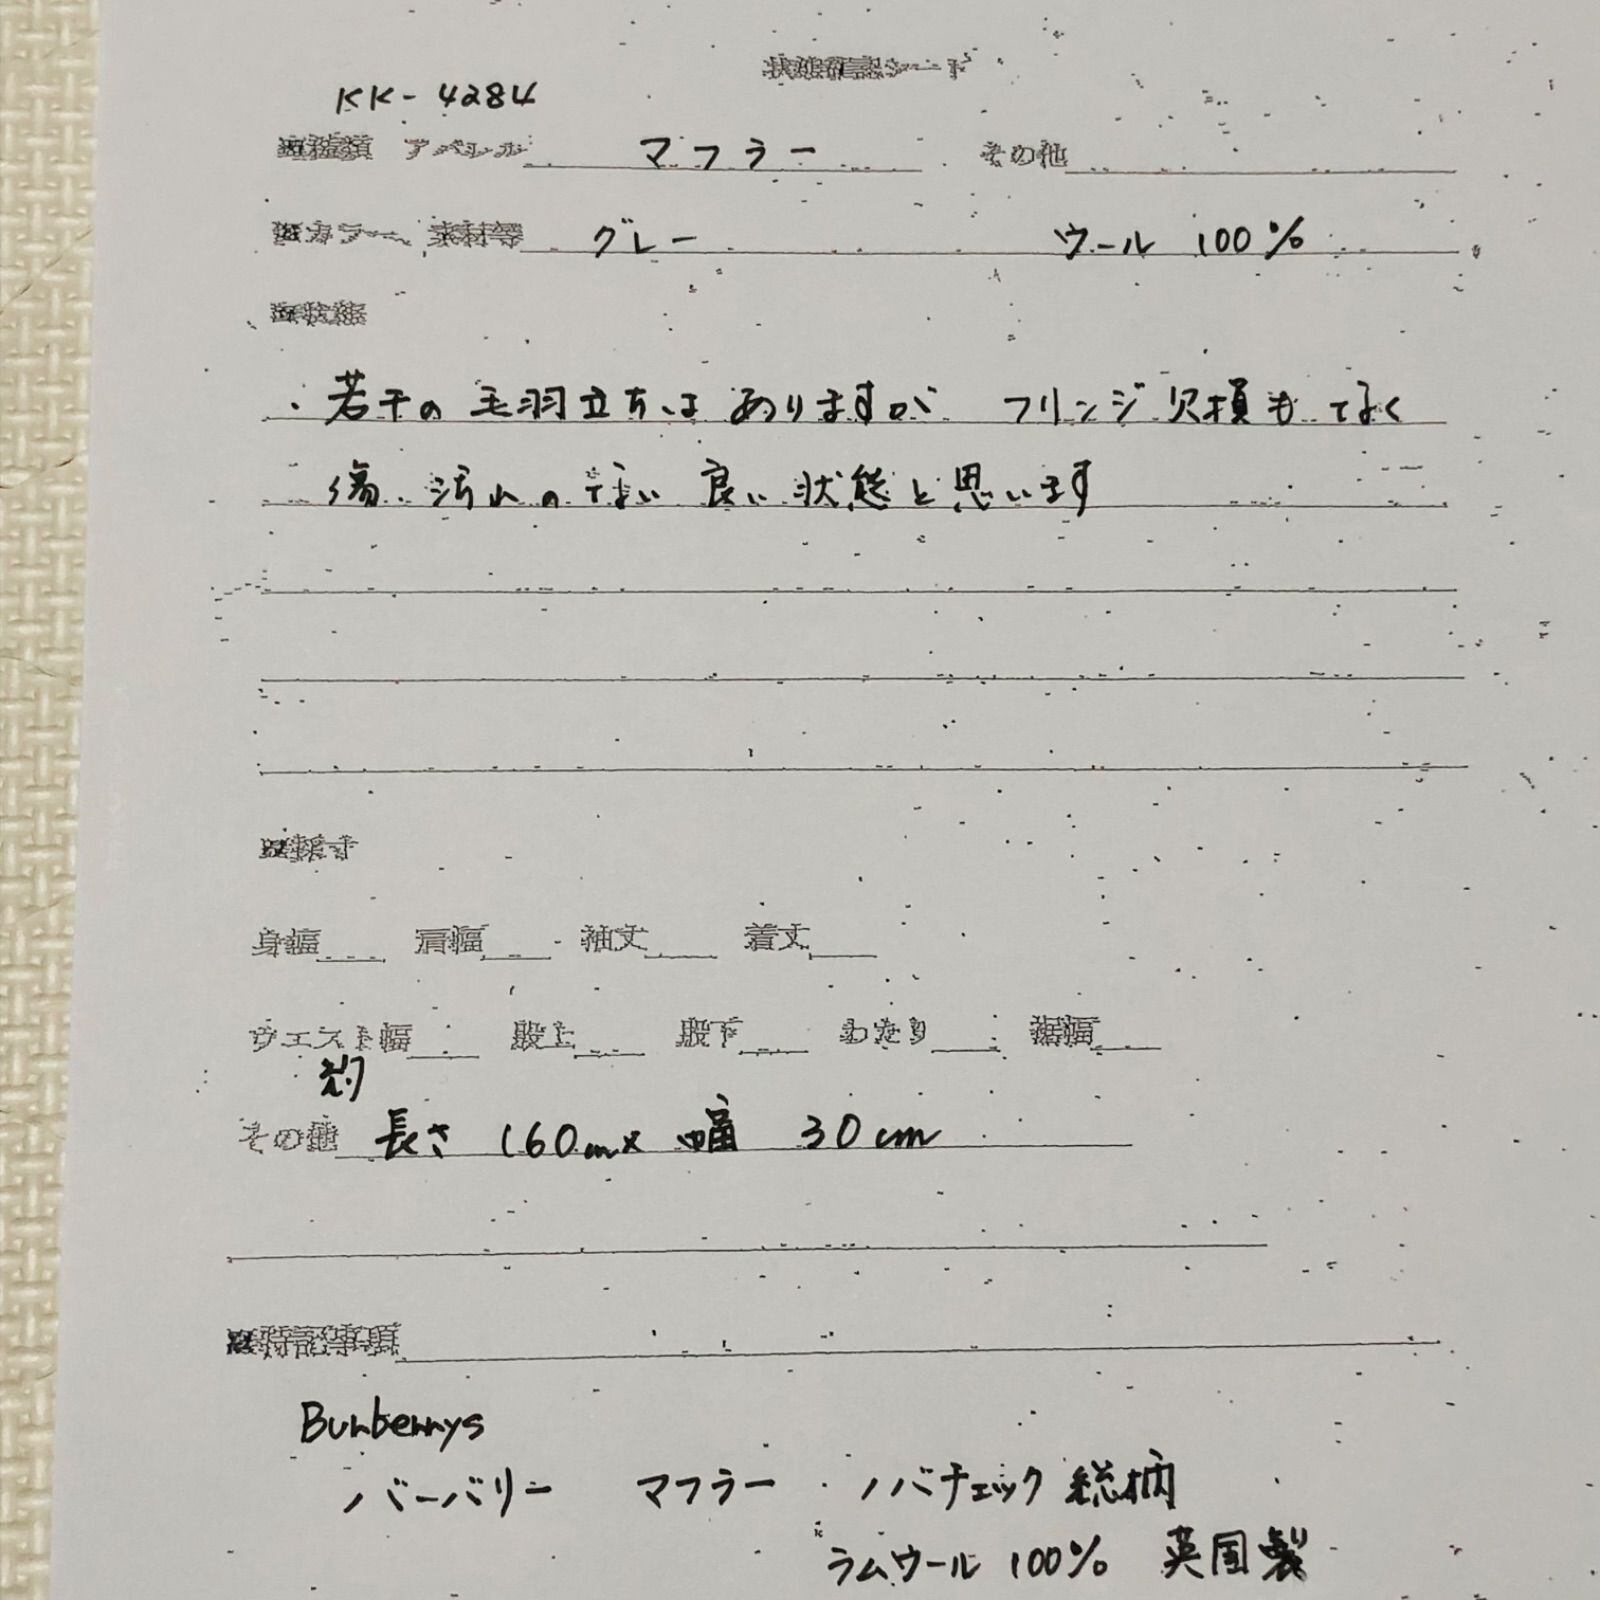 状態確認シート
KK-4284
種類 アパレル マフラー その他
カラー、素材等 グレー ウール 100%
状態
・若干の毛羽立ちはありますが フリンジ欠損もなく
傷、汚れのない良い状態と思います
採寸
身幅 肩幅 袖丈 着丈
ウエスト幅 股上 股下 わたり 裾幅
約
その他 長さ 160cm× 幅 30cm
特記事項
Burberrys
バーバリー マフラー ノバチェック総柄
ラムウール 100% 英国製